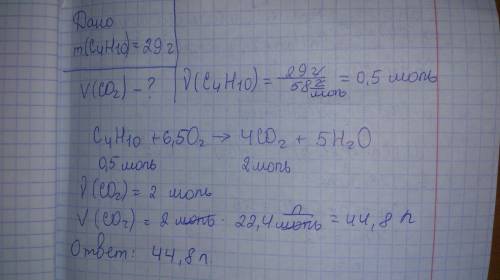 Дано
m(C4H10) = 29 г
V(CO2) - ?
ν(C4H10) = 29 г / 58 г/моль = 0,5 моль
C4H10 + 6,5O2 → 4CO2 + 5H2O
0,5 моль 2 моль
ν(CO2) = 2 моль
V(CO2) = 2 моль · 22,4 л/моль = 44,8 л
Ответ: 44,8 л